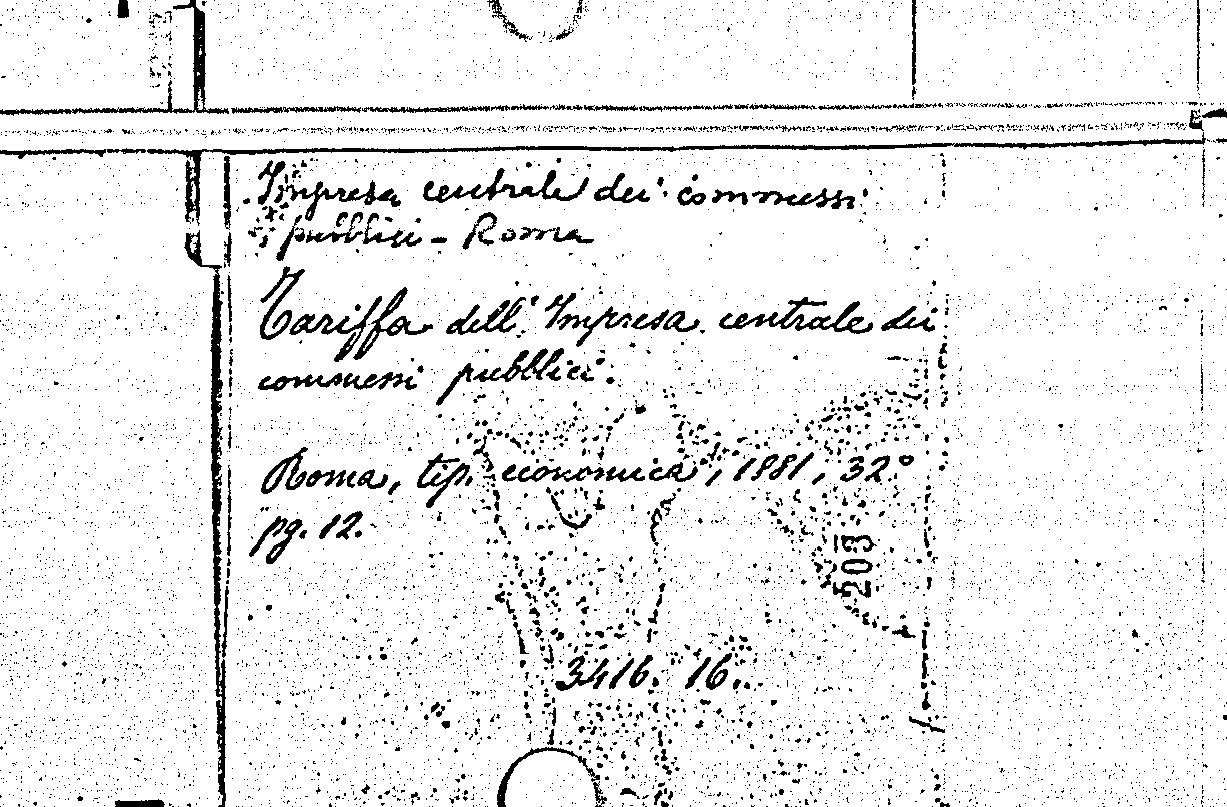 Impresa centrale dei commessi
pubblici - Roma
Tariffa dell'Impresa centrale dei
commessi pubblici.
Roma, tip. economica, 1881, 32°
pg. 12.
203
3416. 16.